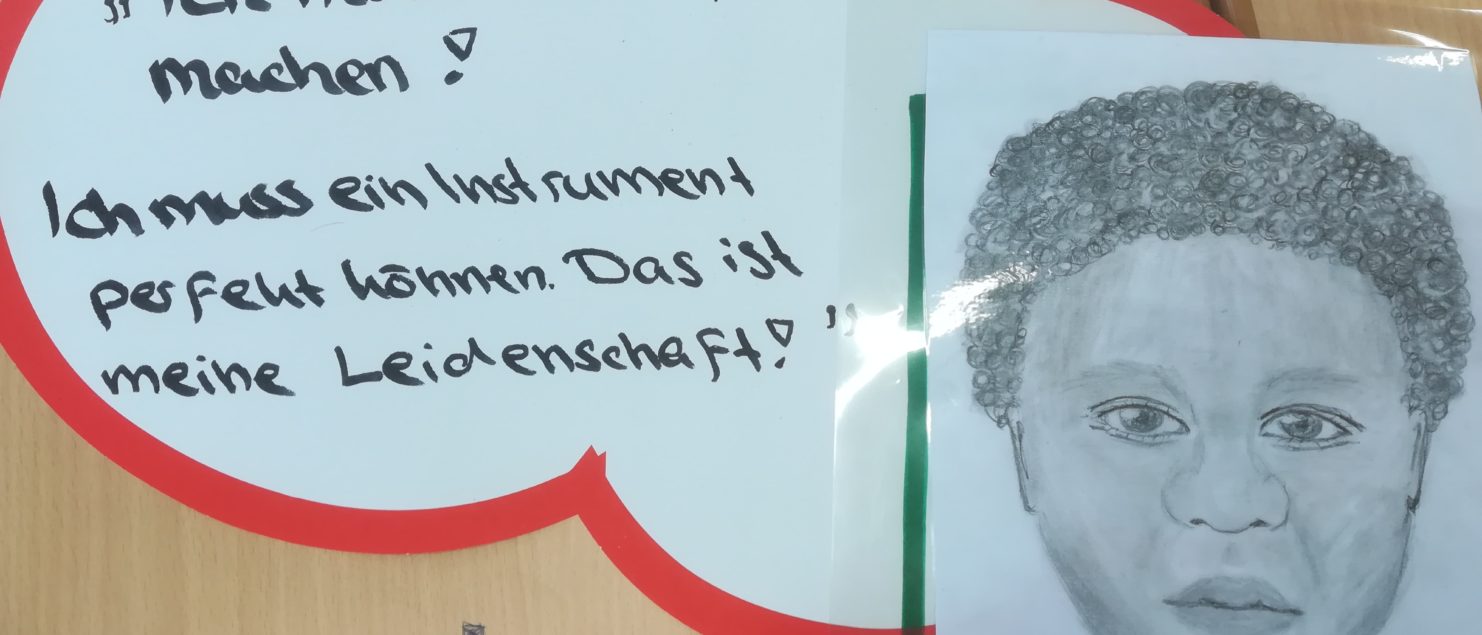 „Ich
machen!
Ich muss ein Instrument
perfekt können. Das ist
meine Leidenschaft!"